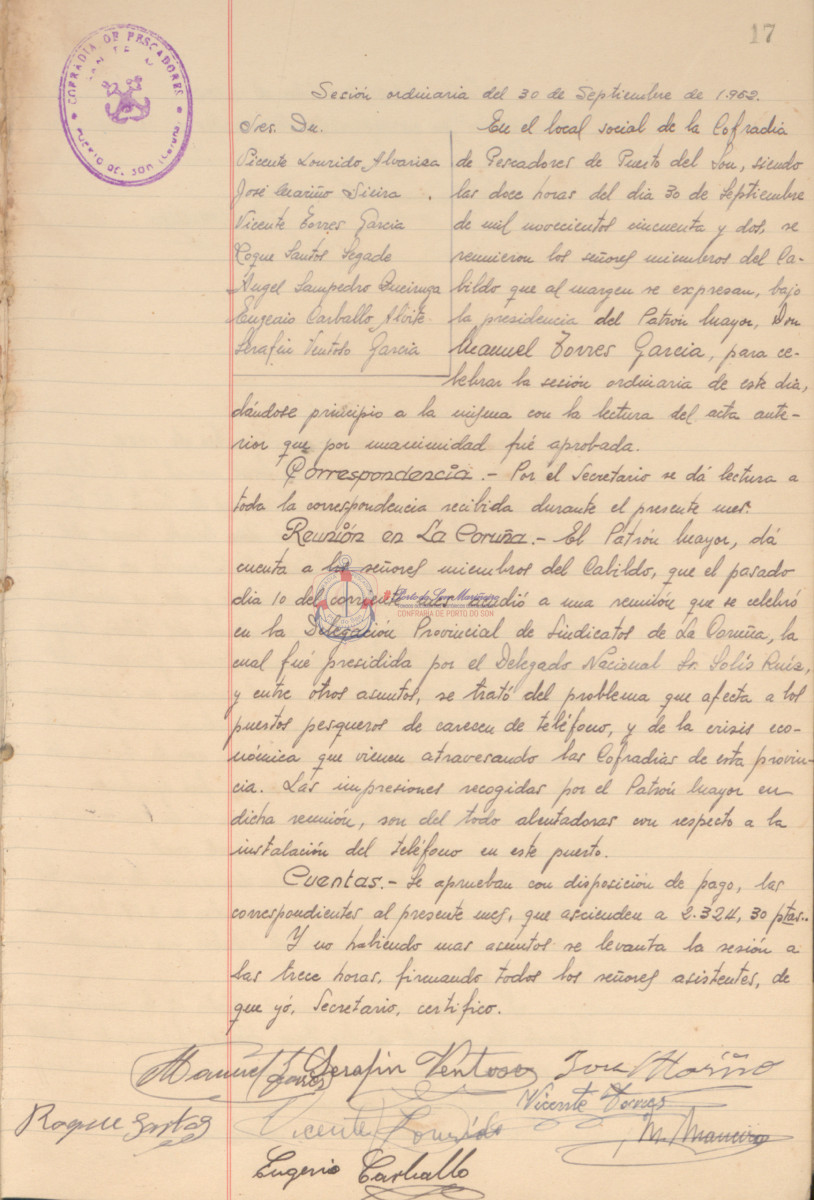 17
COFRADIA DE PESCADORES
PUERTO DEL SON (CORUÑA)
Sesión ordinaria del 30 de Septiembre de 1.952.
Sres. Dn.
Vicente Lourido Alvariza
José Mariño Sieira
Vicente Torres Garcia
Roque Santos Segade
Ángel Sampedro Queiruga
Eugenio Carballo Alvite
Serafin Ventoso Garcia
En el local social de la Cofradia
de Pescadores de Puerto del Son, siendo
las doce horas del dia 30 de Septiembre
de mil novecientos cincuenta y dos, se
reunieron los señores miembros del Ca-
bildo que al margen se expresan, bajo
la presidencia del Patrón Mayor, Don
Manuel Torres Garcia, para ce-
lebrar la sesión ordinaria de este dia,
dándose principio a la misma con la lectura del acta ante-
rior que por unanimidad fué aprobada.
Correspondencia.- Por el Secretario se dá lectura a
toda la correspondencia recibida durante el presente mes.
Reunión en La Coruña.- El Patrón Mayor, dá
cuenta a los señores miembros del Cabildo, que el pasado
dia 10 del corriente mes acudió a una reunión que se celebró
en la Delegación Provincial de Sindicatos de La Coruña, la
cual fué presidida por el Delegado Nacional Sr. Solís Ruiz,
y entre otros asuntos, se trató del problema que afecta a los
puertos pesqueros de carecen de teléfono, y de la crisis eco-
nómica que vienen atravesando las Cofradias de esta provin-
cia. Las impresiones recogidas por el Patrón Mayor en
dicha reunión, son del todo alentadoras con respecto a la
instalación del teléfono en este puerto.
Cuentas.- Se aprueban con disposición de pago, las
correspondientes al presente mes, que ascienden a 2.324,30 ptas..
Y no habiendo mas asuntos se levanta la sesión a
las trece horas, firmando todos los señores asistentes, de
que yó, Secretario, certifico.
CONFRARIA DE PORTO DO SON
Manuel Torres
Serafin Ventoso
José Mariño
Vicente Torres
Roque Santos
Vicente Lourido
M. Maneiro
Eugenio Carballo